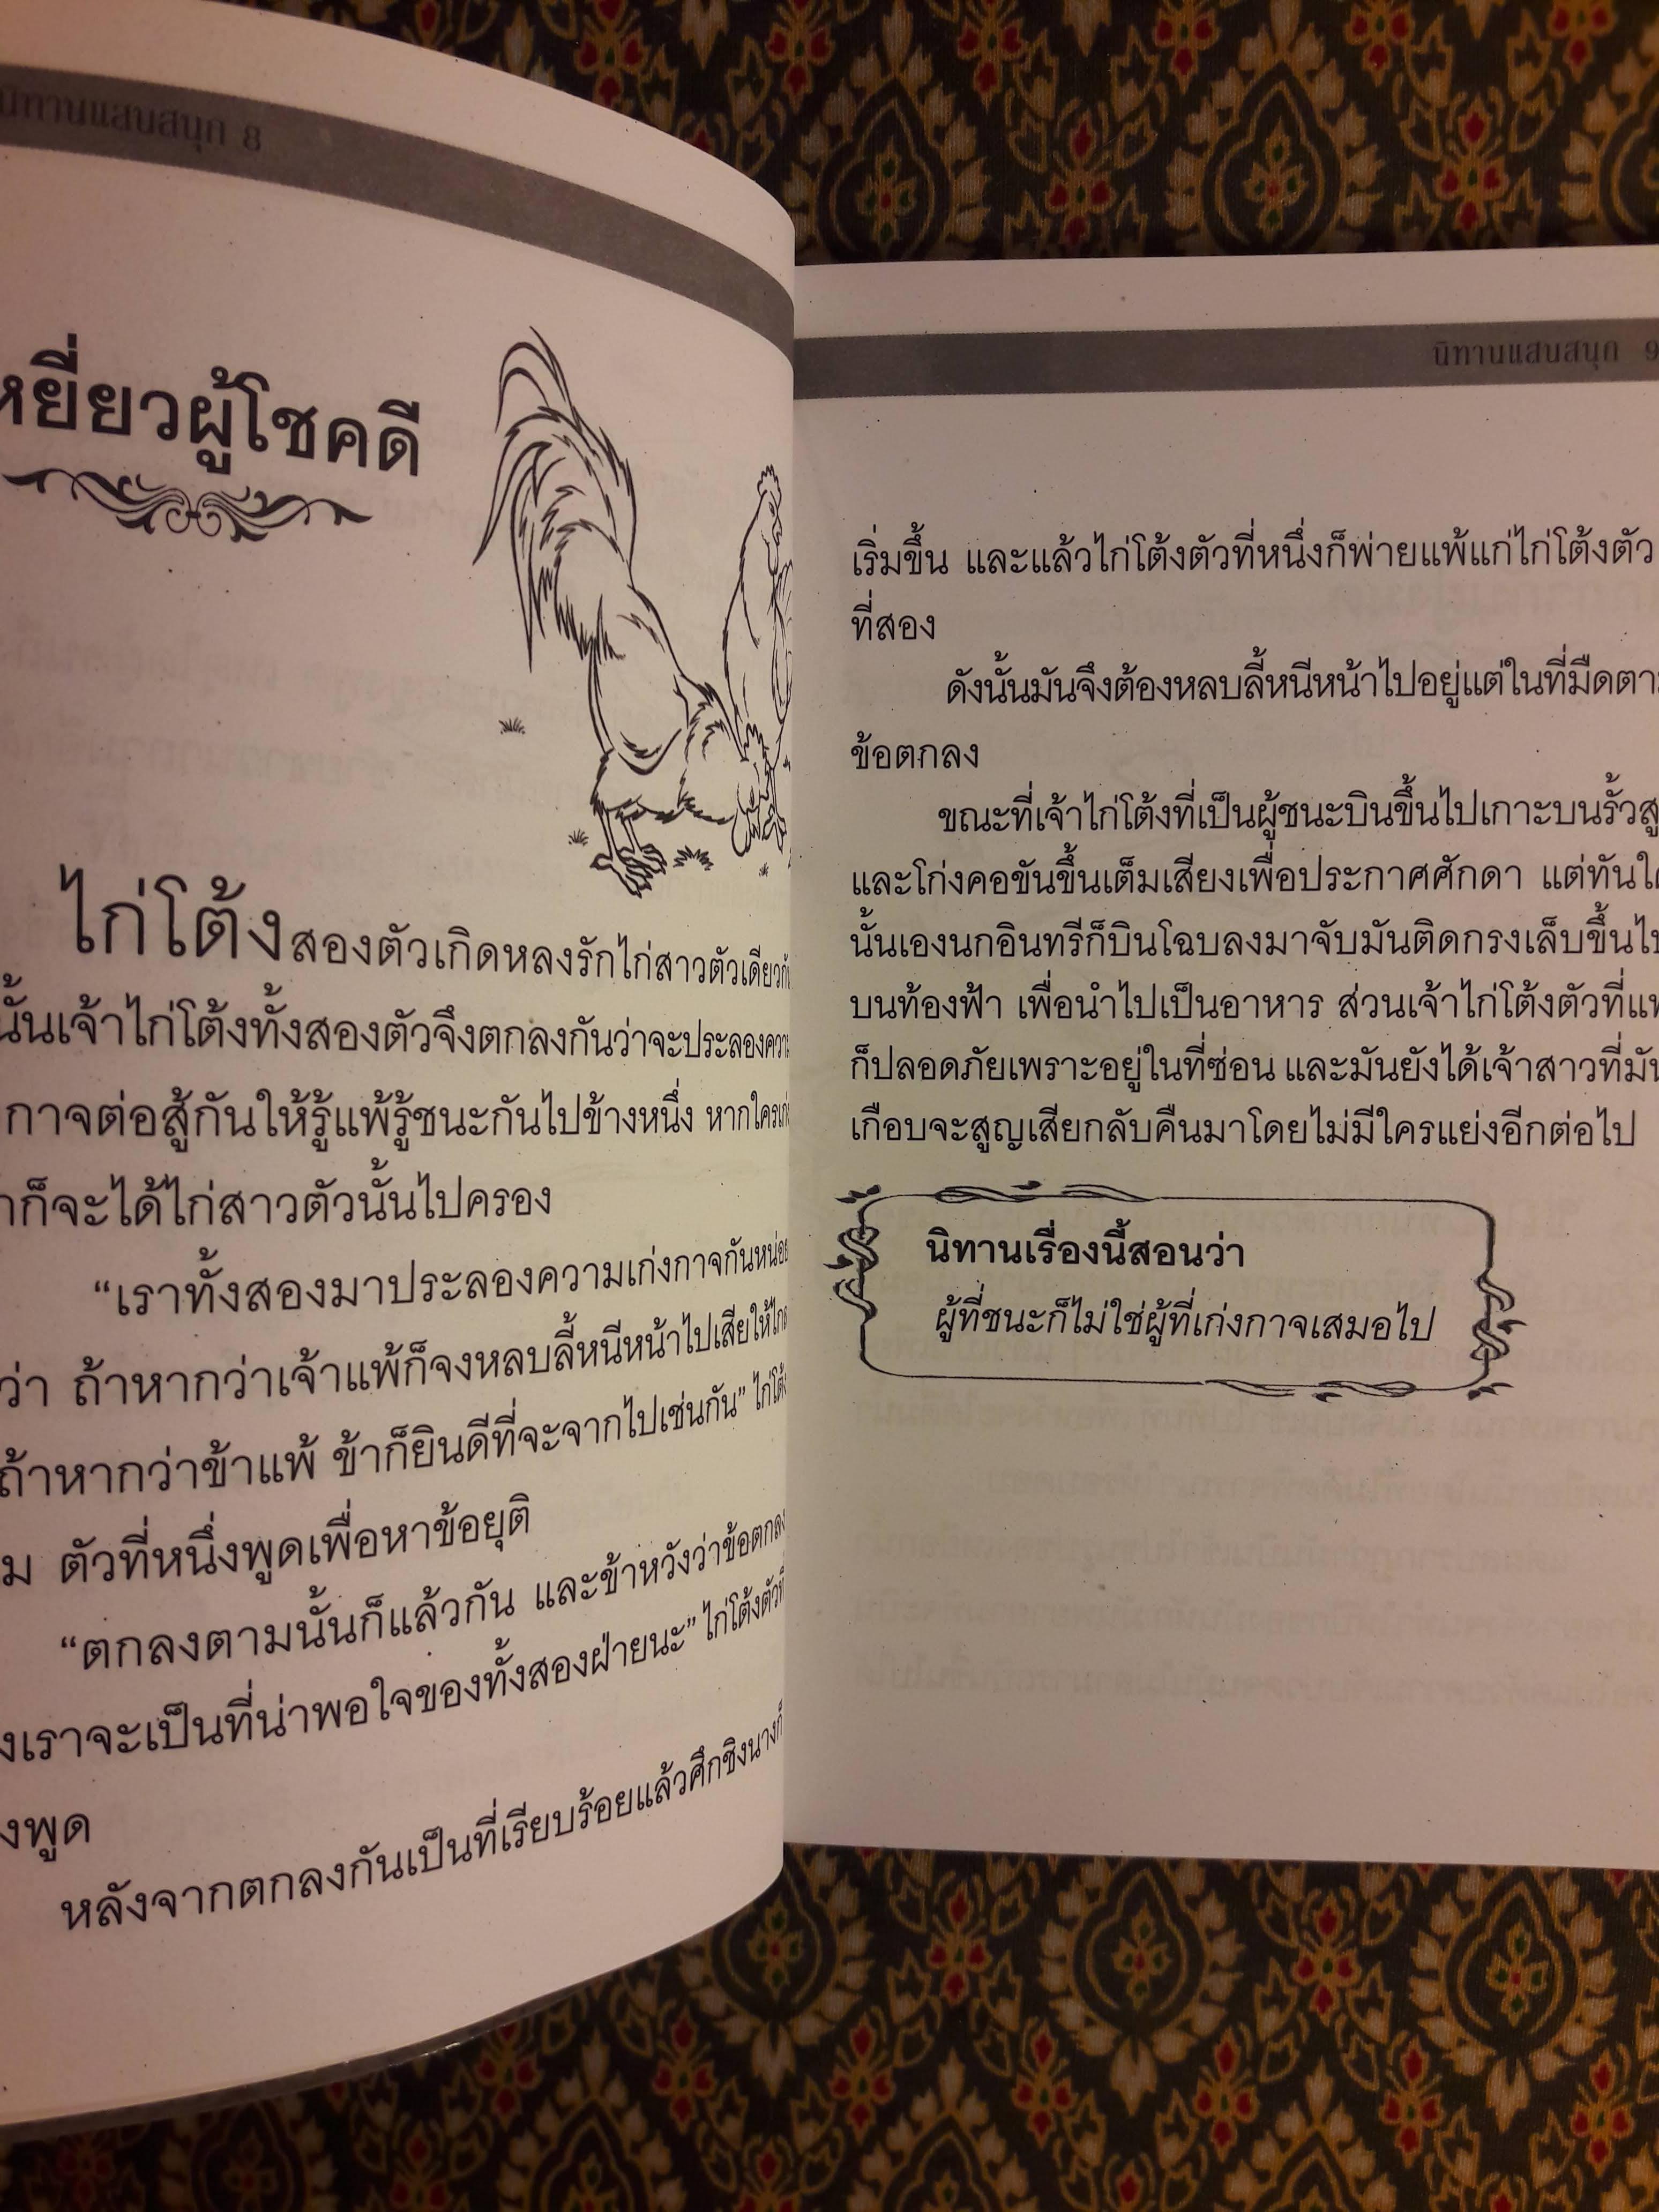 นิทานแสนสนุก 8
หยี่ยวผู้โชคดี
ไก่โต้งสองตัวเกิดหลงรักไก่สาวตัวเดียว
นั้นเจ้าไก่โต้งทั้งสองตัวจึงตกลงกันว่าจะประลอง
กาจต่อสู้กันให้รู้แพ้รู้ชนะกันไปข้างหนึ่ง หากใคร
ก็จะได้ไก่สาวตัวนั้นไปครอง
“เราทั้งสองมาประลองความเก่งกาจกันหน่อย
ว่า ถ้าหากว่าเจ้าแพ้ก็จงหลบลี้หนีหน้าไปเสียให้
ถ้าหากว่าข้าแพ้ ข้าก็ยินดีที่จะจากไปเช่นกัน” ไก่โต้ง
ตัวที่หนึ่งพูดเพื่อหาข้อยุติ
“ตกลงตามนั้นก็แล้วกัน และข้าหวังว่าข้อตกลง
เราจะเป็นที่น่าพอใจของทั้งสองฝ่ายนะ” ไก่โต้งตัวที่
งพูด
หลังจากตกลงกันเป็นที่เรียบร้อยแล้วศึกชิงนางก็
นิทานแสนสนุก 9
เริ่มขึ้น และแล้วไก่โต้งตัวที่หนึ่งก็พ่ายแพ้แก่ไก่โต้งตัว
ที่สอง
ดังนั้นมันจึงต้องหลบลี้หนีหน้าไปอยู่แต่ในที่มืดตาม
ข้อตกลง
ขณะที่เจ้าไก่โต้งที่เป็นผู้ชนะบินขึ้นไปเกาะบนรั้วสู
และโก่งคอขันขึ้นเต็มเสียงเพื่อประกาศศักดา แต่ทันใด
นั้นเองนกอินทรีก็บินโฉบลงมาจับมันติดกรงเล็บขึ้นไป
บนท้องฟ้า เพื่อนำไปเป็นอาหาร ส่วนเจ้าไก่โต้งตัวที่แพ้
ก็ปลอดภัยเพราะอยู่ในที่ซ่อน และมันยังได้เจ้าสาวที่มัน
เกือบจะสูญเสียกลับคืนมาโดยไม่มีใครแย่งอีกต่อไป
นิทานเรื่องนี้สอนว่า
ผู้ที่ชนะก็ไม่ใช่ผู้ที่เก่งกาจเสมอไป